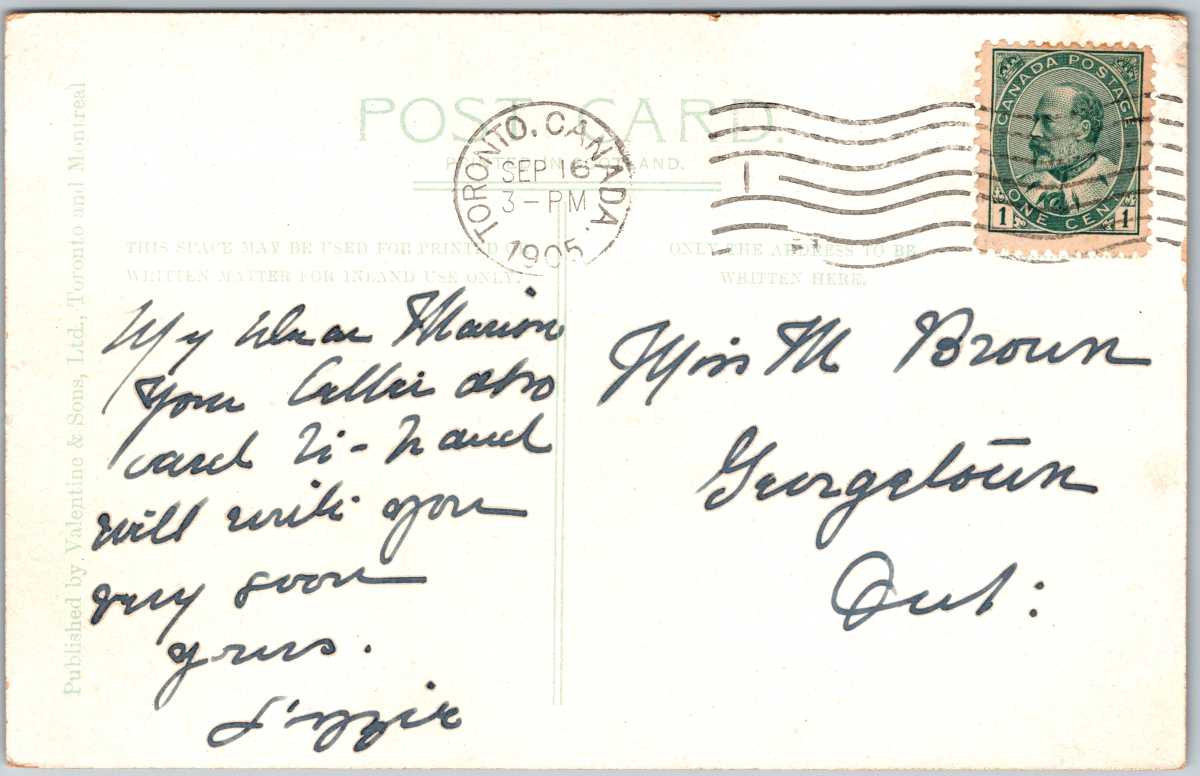 POST CARD.
PRINTED IN SCOTLAND.
TORONTO, CANADA.
SEP 16
3-PM
1905
CANADA POSTAGE
1 ONE CENT 1
THIS SPACE MAY BE USED FOR PRINTED
WRITTEN MATTER FOR INLAND USE ONLY.
ONLY THE ADDRESS TO BE
WRITTEN HERE.
Published by Valentine & Sons, Ltd., Toronto and Montreal
My dear Marion
Your letter also
card to-hand
will write you
very soon
yours.
Lizzie
Miss M Brown
Georgetown
Ont: